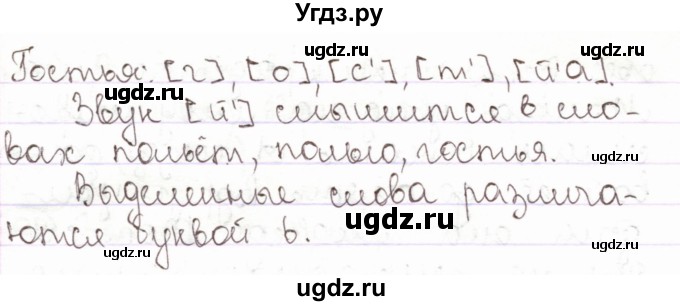 Угдз.ру
ugdz.ru
Гостья: [г], [о], [с'], [т'], [й'а].
ugdz.ru ugdz.ru
Звук [й'] слышится в сло-
ugdz.ru
вах польёт, полью, гостья.
ugdz.ru
Выделенные слова различа-
ugdz.ru
ются буквой ь.
ugdz.ru
ugdz.ru